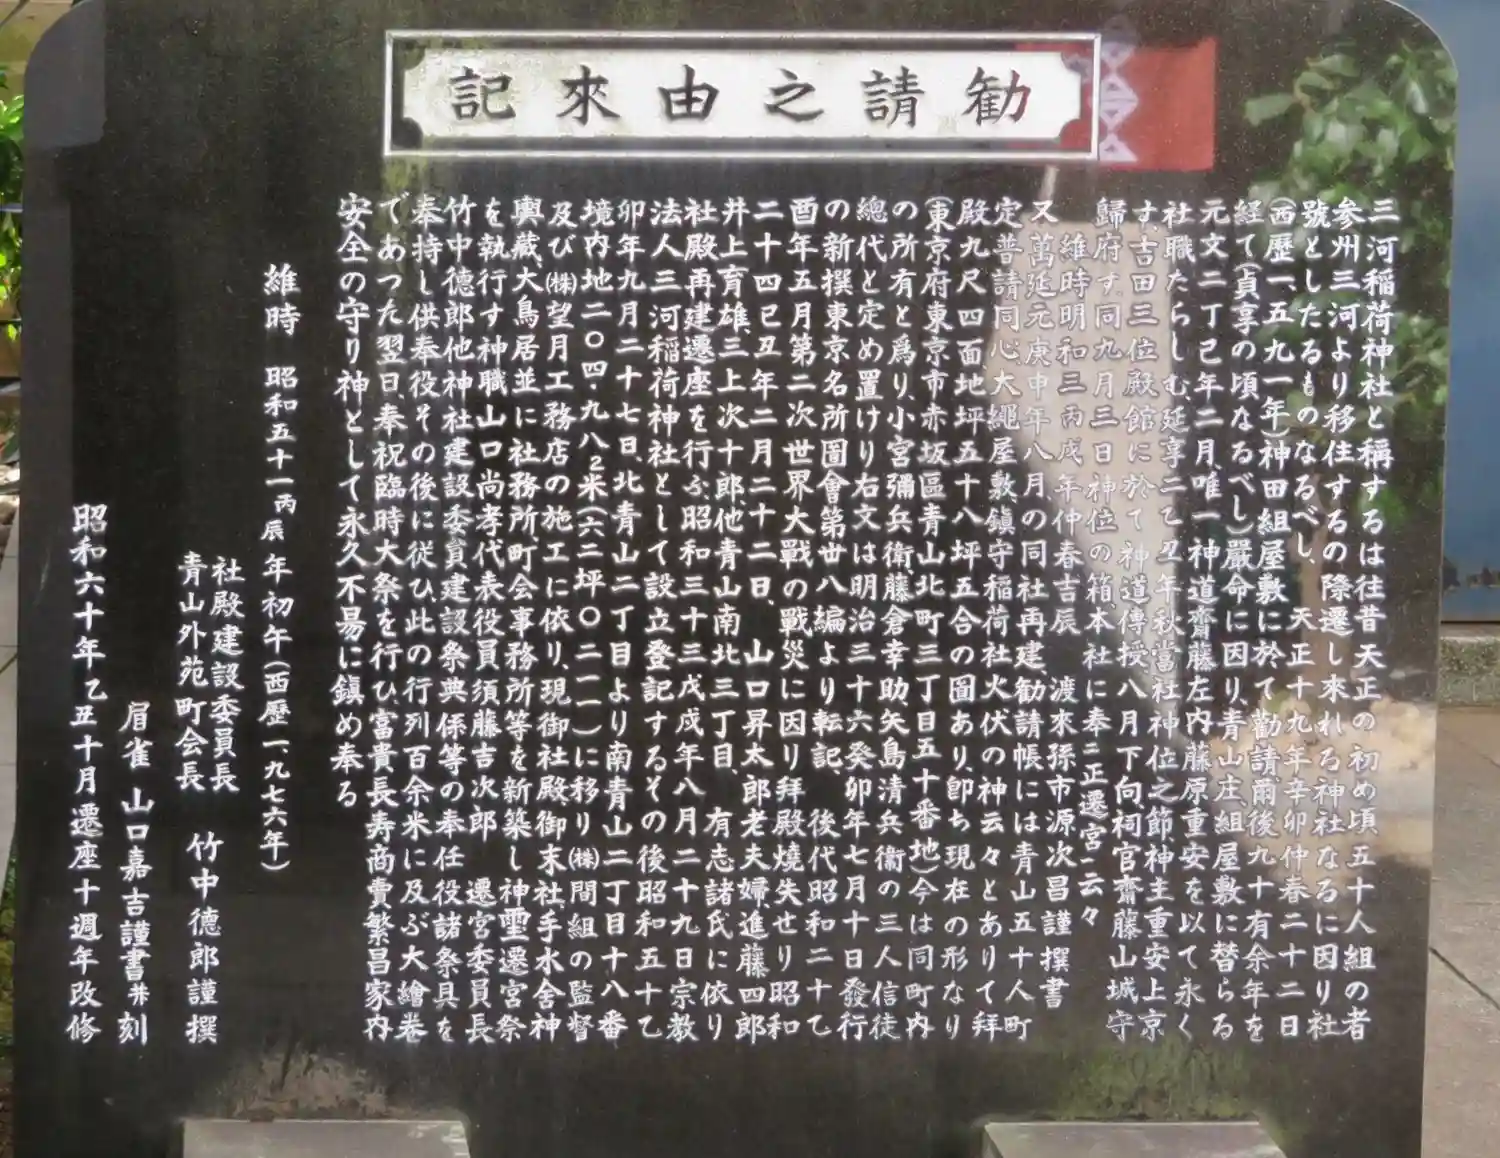 勧請之由来記
三河稲荷神社と稱するは往昔天正の初め頃五十人組の者
参州三河より移住するの際遷し来れる神社なるに因り社
號としたるものなるべし、天正十九年辛卯仲春二十二日
(西歴一、五九一年神田組屋敷に於て勸請、爾後九十有余年を
経て(貞享の頃なるべし)嚴命に因り、青山庄、組屋敷に替らる
元文二丁己年二月、唯一神道齋藤左内藤原重安を以て永く
社職たらしむ、延享二乙丑年秋當社神位之節神主重安上京
す、吉田三位殿館に於て神道傳授八月下向、祠官齋藤山城守
歸府す、同九月三日神位の箱、本社に奉二正遷宮二云々
維時明和三丙戌年仲春吉辰　渡來孫市源次昌謹撰書
又萬延元庚申年八月、の同社再建、勧請帳には青山五十人町
定普請同心大繩屋敷、鎮守稲荷社火伏の神云々とありて拜
殿九尺四面地坪五十八坪五合の圖あり、卽ち現在の形なり
(東京府東京市赤坂區青山北町三丁目五十番地)今は同町内
の所有と爲り、小宮彌兵衛、藤倉幸助、矢島清兵衞の三人信徒
總代と定め置けり右文は明治三十六癸卯年七月十日發行
の新撰東京名所圖會第丗八編より転記、後代昭和二十乙
酉年五月第二次世界大戰の戰災に因り拜殿燒失せり昭和
二十四已丑年二月二十二日、山口昇太郎老夫婦、進藤四郎
井上育雄、三上次十郎、他青山南北三丁目、有志諸氏に依り
社殿再建遷座を行ふ、昭和三十三戊戌年八月二十九日宗教
法人三河稲荷神社として設立登記するその後昭和五十乙
卯年九月二十七日、北青山二丁目より南青山二丁目十八番
境内地二〇四・九八2米(六二坪〇二一一)に移り(株)間組の監督
及び(株)望月工務店の施工に依り、現御社殿、御末社、手水舎神
輿藏、大鳥居並に社務所、町会事務所等を新築し神霊遷宮祭
を執行す神職山口尚孝、代表役員須藤吉次郎　遷宮委員長
竹中德郎他神社建設委員建設祭典係等の奉仕役諸祭具を
奉持し供奉役その後に従ひ此の行列百余米に及ぶ大繪巻
であつた翌日、奉祝臨時大祭を行ひ、富貴、長寿商賣繁昌家内
安全の守り神として永久不易に鎮め奉る
維時　昭和五十一丙辰年初午(西歴一、九七六年)
社殿建設委員長　竹中德郎謹撰
青山外苑町会長
眉雀　山口嘉吉謹書并刻
昭和六十年乙丑十月遷座十週年改修